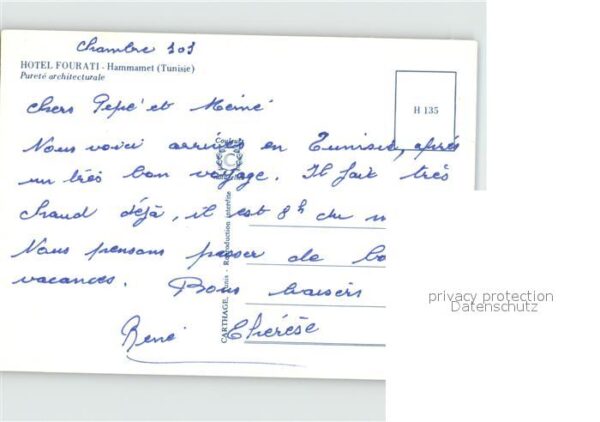 Chambre 101
HOTEL FOURATI - Hammamet (Tunisie)
Pureté architecturale
H 135
Chers Pépé et Mémé
Nous voici arrivés en Tunisie, après
un très bon voyage. Il fait très
chaud déjà, il est 8h du m
Nous pensons passer de bo
vacances. Bons baisers
René Thérèse
CARTHAGE, Tunis - Reproduction interdite
privacy protection
Datenschutz